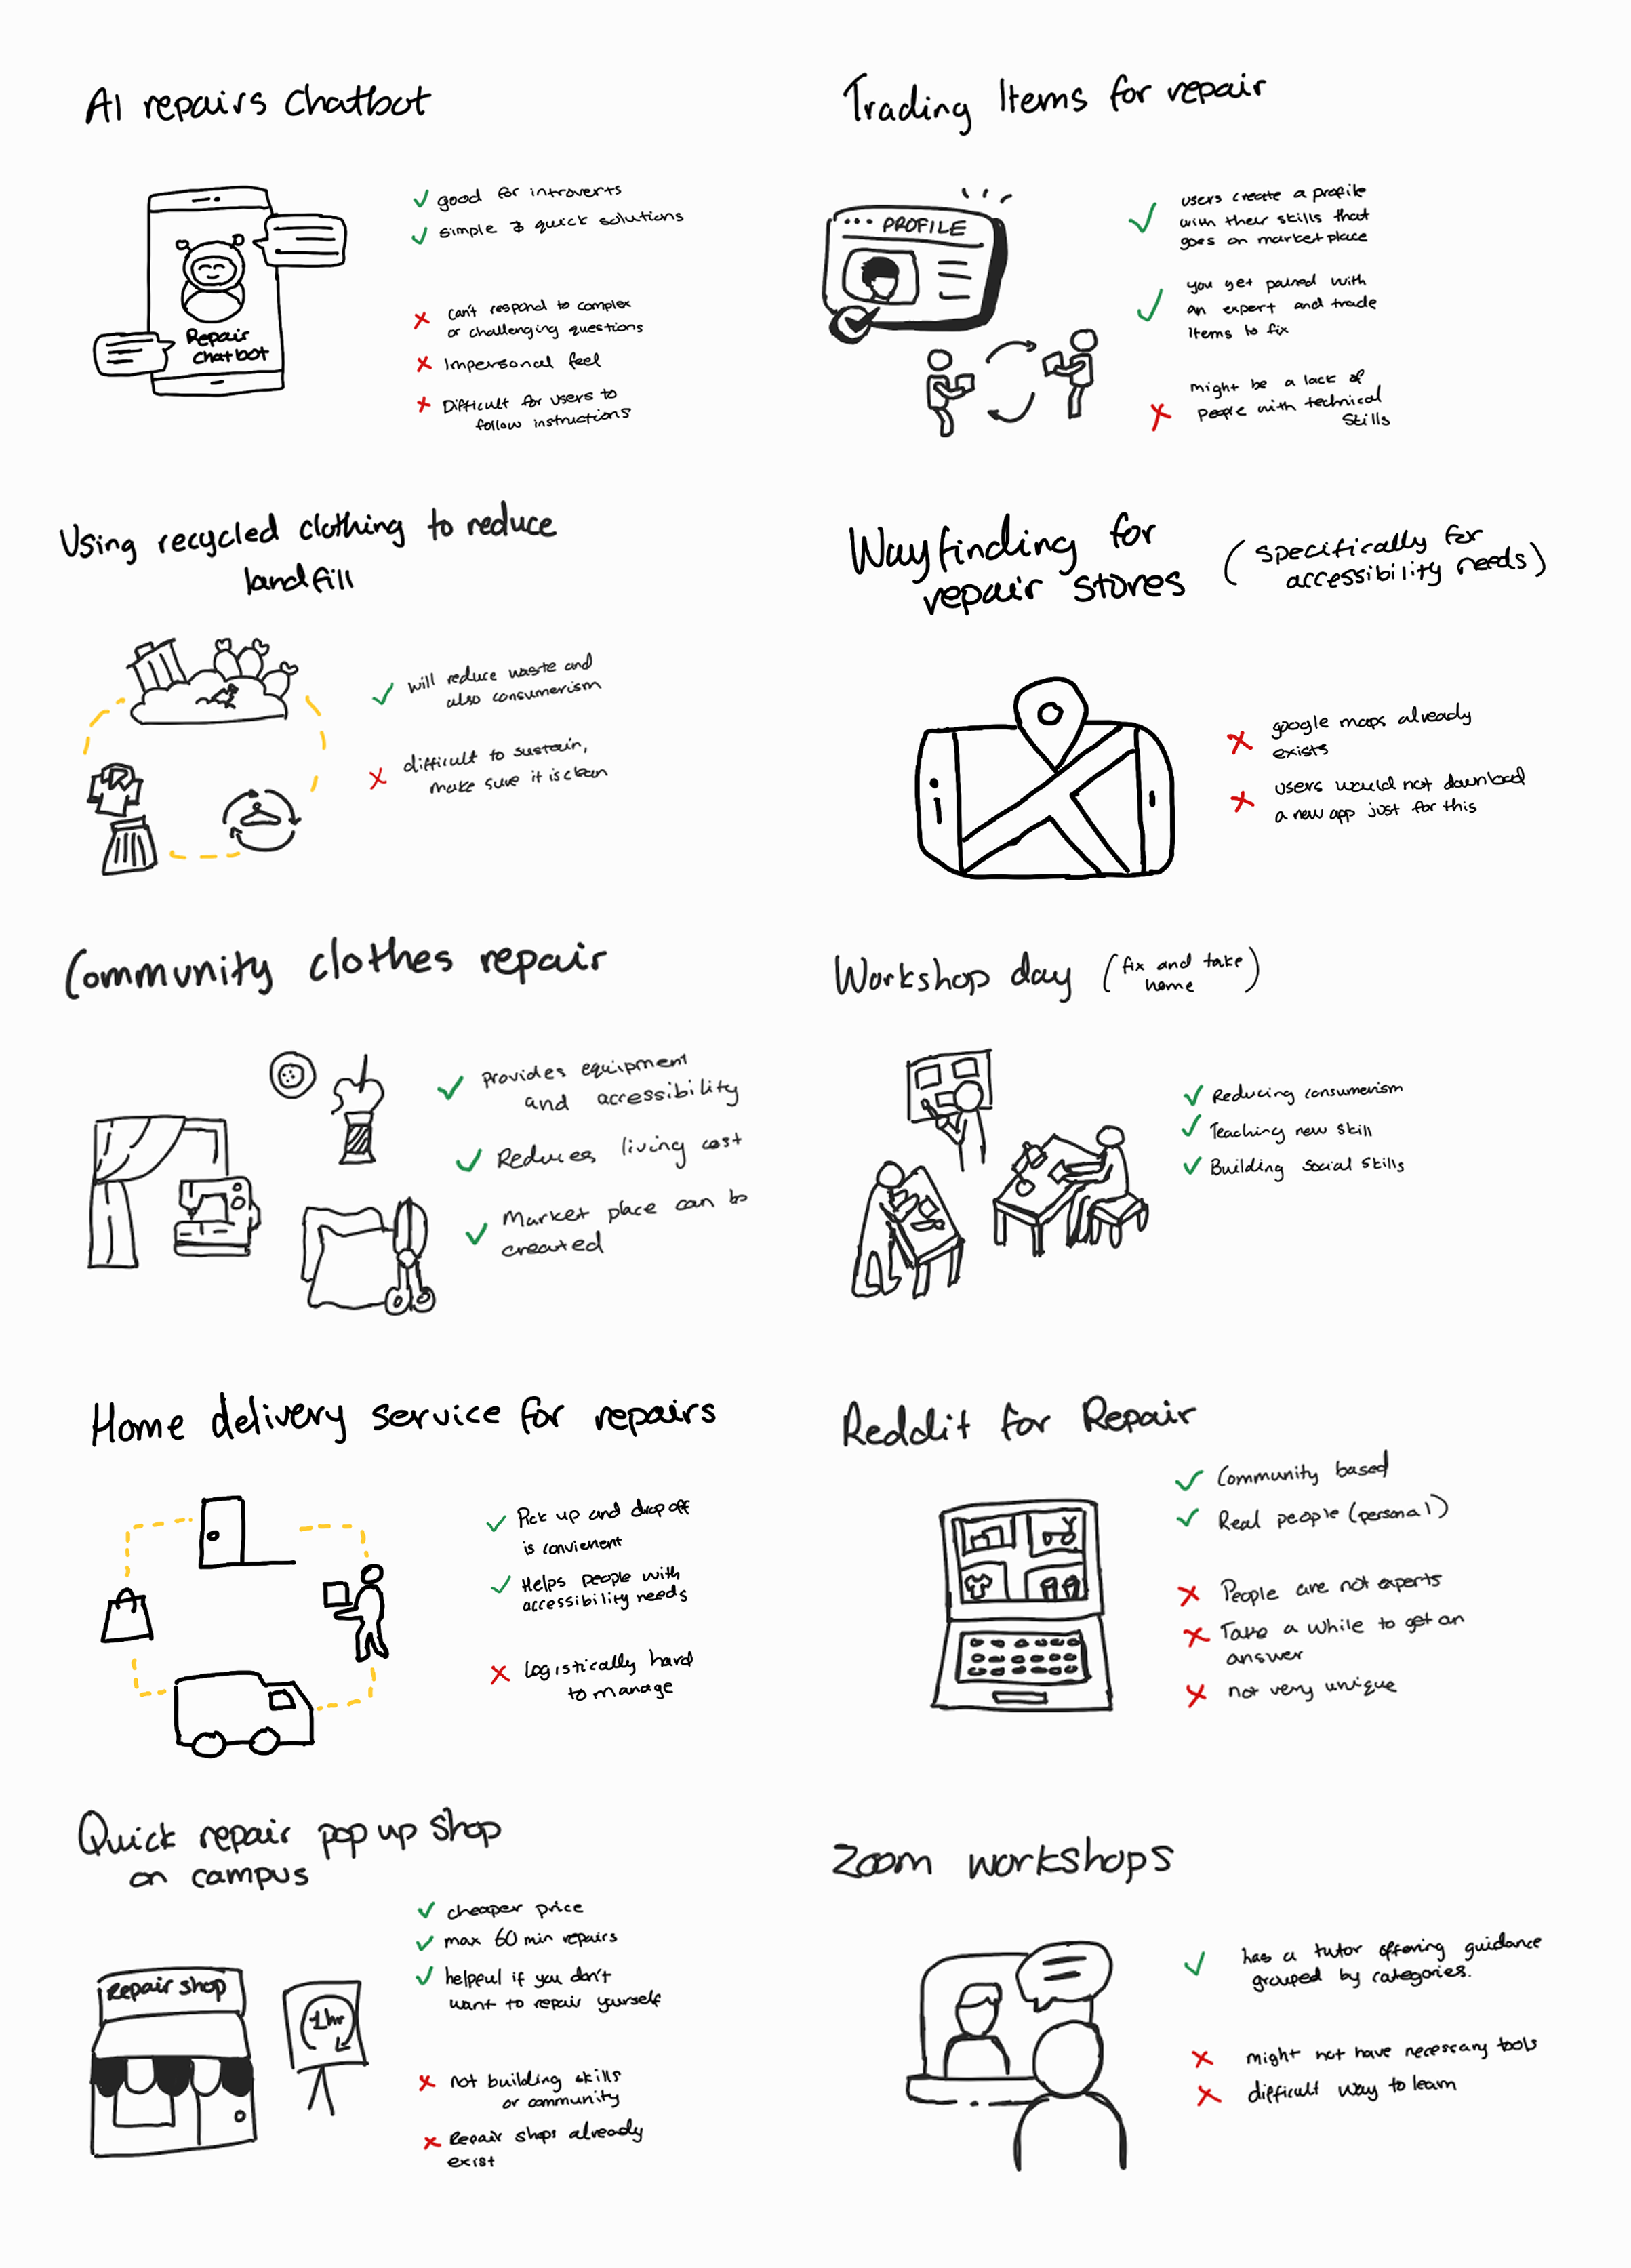 AI repairs Chatbot
Repair
Chatbot
✓ good for introverts
✓ simple & quick solutions
✗ can't respond to complex
or challenging questions
✗ Impersonal feel
✗ Difficult for users to
follow instructions
Trading Items for repair
PROFILE
✓ users create a profile
with their skills that
goes on marketplace
✓ you get paired with
an expert and trade
items to fix
✗ might be a lack of
people with technical
skills
Using recycled clothing to reduce
landfill
✓ will reduce waste and
also consumerism
✗ difficult to sustain,
make sure it is clean
Wayfinding for
repair stores
(specifically for
accessibility needs)
✗ google maps already
exists
✗ users would not download
a new app just for this
Community clothes repair
✓ provides equipment
and accessibility
✓ Reduces living cost
✓ Market place can b
created
Workshop day (fix and take
home)
✓ Reducing consumerism
✓ Teaching new skill
✓ Building social skills
Home delivery service for repairs
✓ Pick up and drop off
is convienent
✓ Helps people with
accessibility needs
✗ Logistically hard
to manage
Reddit for Repair
✓ Community based
✓ Real people (personal)
✗ People are not experts
✗ Take a while to get an
answer
✗ not very unique
Quick repair pop up shop
on campus
Repair shop
1hr
✓ cheaper price
✓ max 60 min repairs
✓ helpful if you don't
want to repair yourself
✗ not building skills
or community
✗ Repair shops already
exist
Zoom workshops
✓ has a tutor offering guidance
grouped by categories.
✗ might not have necessary tools
✗ difficult way to learn